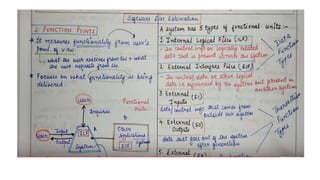 Software Size Estimation
2. FUNCTION POINTS
* It measures functionality from user's
point of view
what the user receives from
the user requests from
* Focuses on what functionality is being
delivered.
user
Functional
Units
Inquiries
user
Input
Output
ILF
System
Other
applications
EIF
A system has 5 types of functional units :-
1. Internal Logical Files (ILF)
The control info or logically related
data that is present within the system
2. External Interface Files (EIF)
The control data or other logical
data i.e. referenced by the system but
another system
Data
Function
Types
3. External
Inputs (EI)
data/control info that comes from
outside our system
4. External
Outputs (EO)
data that goes out of the system
after generation
5. External
Transaction
Function
Types